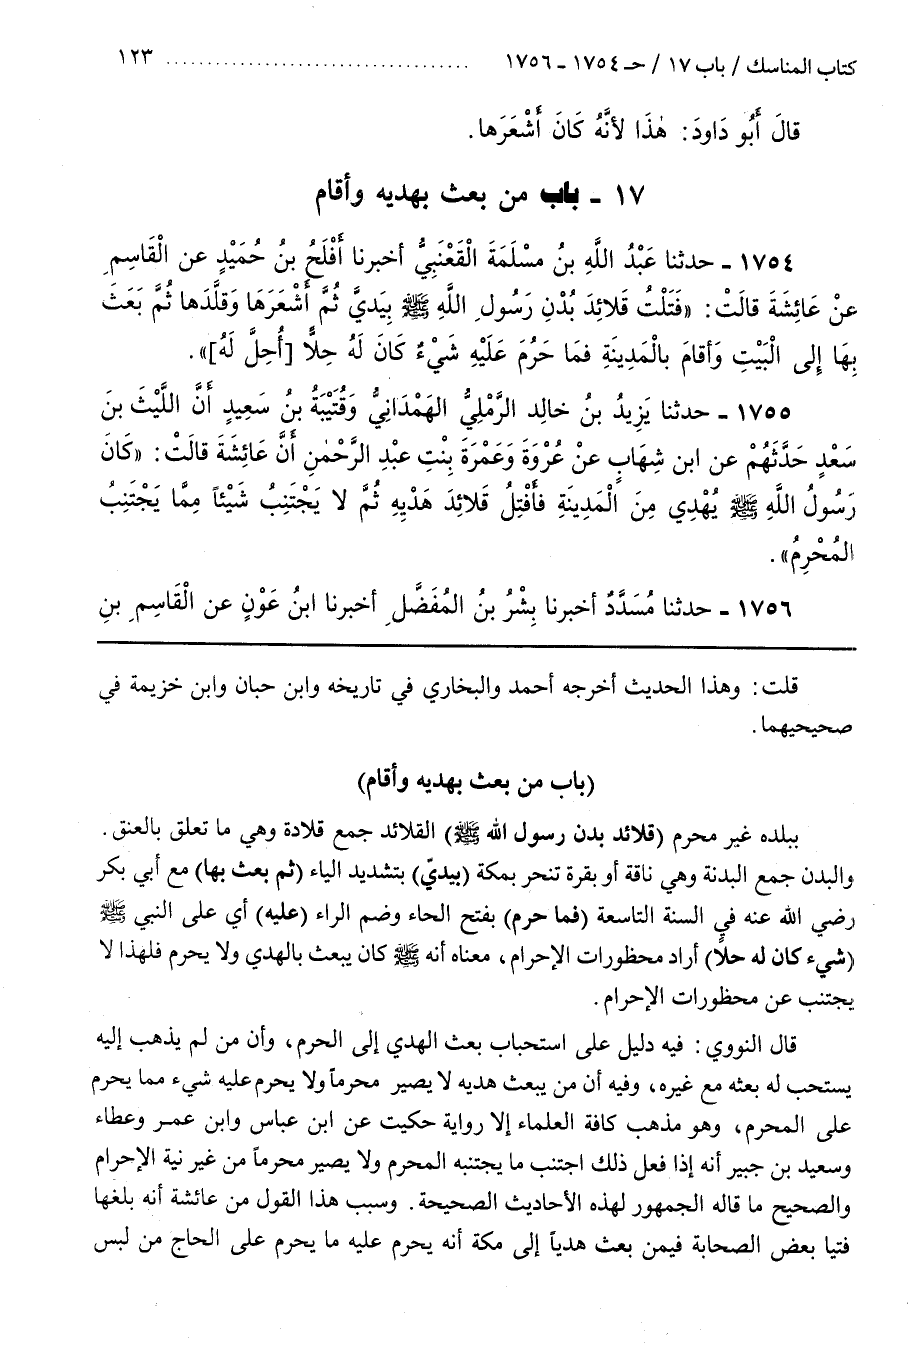 كتاب المناسك / باب ١٧ / حـ ١٧٥٤ - ١٧٥٦ ................................... ١٢٣
قالَ أَبُو دَاودَ: هٰذَا لأنَّهُ كَانَ أَشْعَرَها.
١٧ - باب من بعث بهديه وأقام
١٧٥٤ - حدثنا عَبْدُ اللَّهِ بنُ مسْلَمَةَ الْقَعْنَبِيُّ أخبرنا أَفْلَحُ بنُ حُمَيْدٍ عن الْقَاسِمِ
عنْ عَائِشَةَ قالَتْ: «فَتَلْتُ قَلائِدَ بُدْنِ رَسُولِ اللَّهِ ﷺ بِيَديَّ ثُمَّ أَشْعَرَهَا وَقلَّدَها ثُمَّ بَعَثَ
بِهَا إِلى الْبَيْتِ وَأقامَ بالْمَدِينَةِ فمَا حَرُمَ عَلَيْهِ شَيْءٌ كَانَ لَهُ حِلًّا [أُحِلَّ لَهُ]».
١٧٥٥ - حدثنا يَزِيدُ بنُ خالِد الرَّمْلِيُّ الهَمْدَانِيُّ وَقُتَيْبَةُ بنُ سَعِيدٍ أَنَّ اللَّيْثَ بنَ
سَعْدٍ حَدَّثَهُمْ عن ابن شِهَابٍ عنْ عُرْوَةَ وَعَمْرَةَ بِنْتِ عبْدِ الرَّحْمٰنِ أنَّ عَائِشَةَ قالَتْ: «كَانَ
رَسُولُ اللَّهِ ﷺ يُهْدِي مِنَ الْمَدِينَةِ فَأَفْتِلُ قَلائِدَ هَدْيِهِ ثُمَّ لا يَجْتَنِبُ شَيْئاً مِمَّا يَجْتَنِبُ
المُحْرِمُ».
١٧٥٦ - حدثنا مُسَدَّدٌ أخبرنا بِشْرُ بنُ المُفَضَّلِ أخبرنا ابنُ عَوْنٍ عن الْقَاسِمِ بنِ
قلت: وهذا الحديث أخرجه أحمد والبخاري في تاريخه وابن حبان وابن خزيمة في
صحيحيهما.
(باب من بعث بهديه وأقام)
ببلده غير محرم (قلائد بدن رسول الله ﷺ) القلائد جمع قلادة وهي ما تعلق بالعنق.
والبدن جمع البدنة وهي ناقة أو بقرة تنحر بمكة (بيديّ) بتشديد الياء (ثم بعث بها) مع أبي بكر
رضي الله عنه في السنة التاسعة (فما حرم) بفتح الحاء وضم الراء (عليه) أي على النبي ﷺ
(شيء كان له حلاً) أراد محظورات الإحرام، معناه أنه ﷺ كان يبعث بالهدي ولا يحرم فلهذا لا
يجتنب عن محظورات الإحرام.
قال النووي: فيه دليل على استحباب بعث الهدي إلى الحرم، وأن من لم يذهب إليه
يستحب له بعثه مع غيره، وفيه أن من يبعث هديه لا يصير محرماً ولا يحرم عليه شيء مما يحرم
على المحرم، وهو مذهب كافة العلماء إلا رواية حكيت عن ابن عباس وابن عمر وعطاء
وسعيد بن جبير أنه إذا فعل ذلك اجتنب ما يجتنبه المحرم ولا يصير محرماً من غير نية الإحرام
والصحيح ما قاله الجمهور لهذه الأحاديث الصحيحة. وسبب هذا القول من عائشة أنه بلغها
فتيا بعض الصحابة فيمن بعث هدياً إلى مكة أنه يحرم عليه ما يحرم على الحاج من لبس